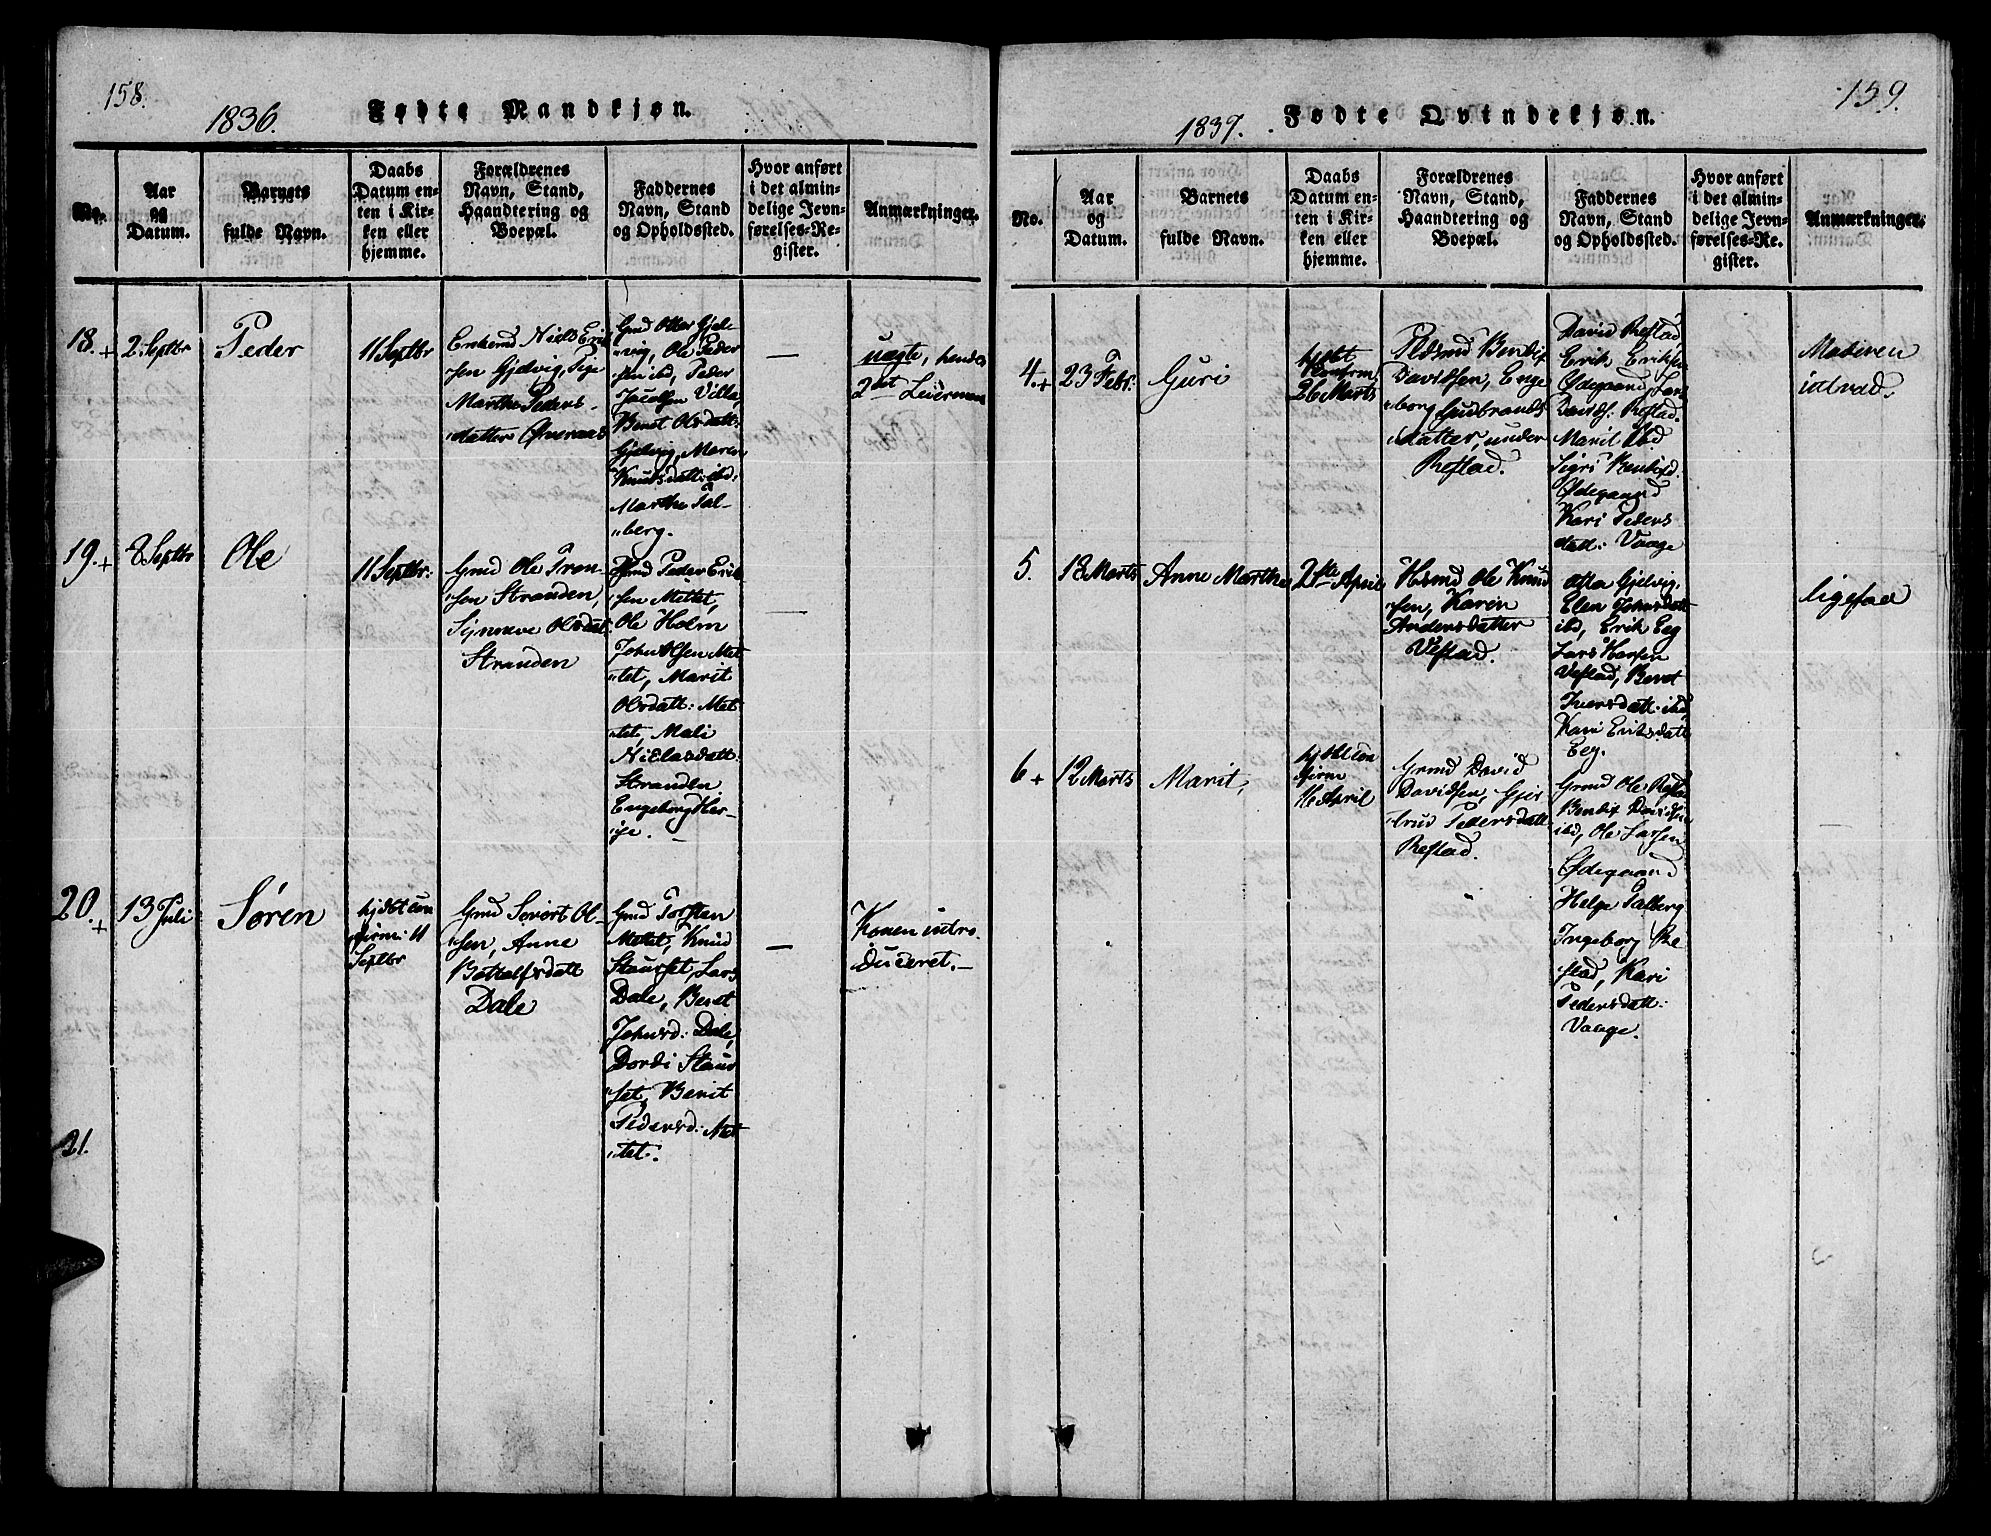 158.
1836. Fødte Mandkjøn.
No.
Aar
og
Datum.
Barnets
fulde Navn.
Daabs
Datum en-
ten i Kir-
ken eller
hjemme.
Forældrenes
Navn, Stand,
Haandtering og
Boepæl.
Faddernes
Navn, Stand
og Opholdssted.
Hvor anført
i det almin-
delige Jevn-
førelses-Re-
gister.
Anmærkninger.
18. + 2. Septbr
Peder
11 Septbr
Enkemd Niels Erik
sen Gjelvig, Pige
Marthe Peders-
datter
Gmd Otter Gjel-
vig, Ole Peder
sen ibd, Peder
Jacobsen Villa,
Beret Olsdatt:
Gjelvig, Maren
Knudsdatt: ibd,
Marthe Tal-
berg.
—
uægte, hendes
2det Leiermaal
19. + 8 Septbr
Ole
11 Septbr:
Gmd Ole Tron-
sen Stranden,
Olsdatt:
Stranden
Gmd Peder Erik
sen Mettet,
Ole Holm
John Olsen Met
tet, Marit
Olsdatt: Met
tet, Mali
Nielsdatt:
Stranden
Engeborg Her-
je.
—
20. + 13 Juli
Søren
hjdbt con
firm: 11
Septbr
Gmd Sivert Ol-
sen, Anne
Bottolfsdatt
Dale
Gmd Torsten
Mettet, Knud
Staurset, Lars
Dale, Beret
Johnsd: Dale,
Dordi Staur
set, Berit
Pedersd: Met
tet.
—
Konen intro-
duceret. —
21.
159.
1837. Fødte Qvindekjøn.
No.
Aar
og
Datum.
Barnets
fulde Navn.
Daabs
Datum en-
ten i Kir-
ken eller
hjemme.
Forældrenes
Navn, Stand,
Haandtering og
Boepæl.
Faddernes
Navn, Stand
og Opholdssted.
Hvor anført
i det almin-
delige Jevn-
førelses-Re-
gister.
Anmærkninger.
4. + 23 Febr:
Guri
hjdbt
Confirm
26 Marts
Pldsmd Bendix
Davidsen, Enge
borg Gudbrands
datter, under
Restad.
David Restad,
Erik Eriksen
Ødegaard, Lars
Davids: Restad
Marit ibd
Sigri
Ødegaard
Kari Peders
datt: Vaage
5. 18 Marts
Anne Marthe
2den April
Hsmd Ole Knud
sen, Karen
Andersdatter
Vestad.
Otter Gjelvig,
Elen Johnsdatt
ibd, Erik Eeg
Lars Hansen
Vestad, Beret
Iversdatt: ibd,
Kari Eriksdatt
Eeg.
ligesaa
6 + 12 Marts
Marit,
hjdbt con
firm
16 April
Grmd David
Davidsen, Gjer
trud Pedersdatt:
Restad.
Grmd Ole Restad
Bendix Davidsen
ibd, Ole Larsen
Ødegaard
Helge Talberg
Ingeborg Re
stad, Kari
Pedersdatt:
Vaage.